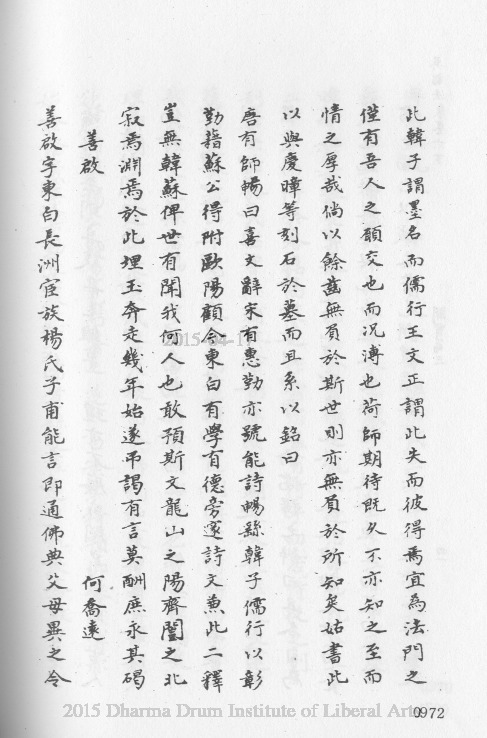 此韓子謂墨名而儒行王文正謂此失而彼得焉宜為法門之
僅有吾人之願交也而況溥也荷師期待既久不亦知之至而
情之厚哉倘以餘齒無負於斯世則亦無負於所知矣姑書此
以與慶暲等刻石於墓而且系以銘曰
唐有師暢曰喜文辭宋有惠勤亦號能詩暢繇韓子儒行以彰
勤藉蘇公得附歐陽顧今東白有學有德旁邃詩文兼此二釋
豈無韓蘇俾世有聞我何人也敢預斯文龍山之陽齊閶之北
寂焉淵焉於此埋玉奔走幾年始遂吊謁有言莫酬庶永其碣
善啟 何喬遠
善啟字東白長洲宦族楊氏子甫能言即通佛典父母異之令
2015-04-1
0972
2015 Dharma Drum Institute of Liberal Arts